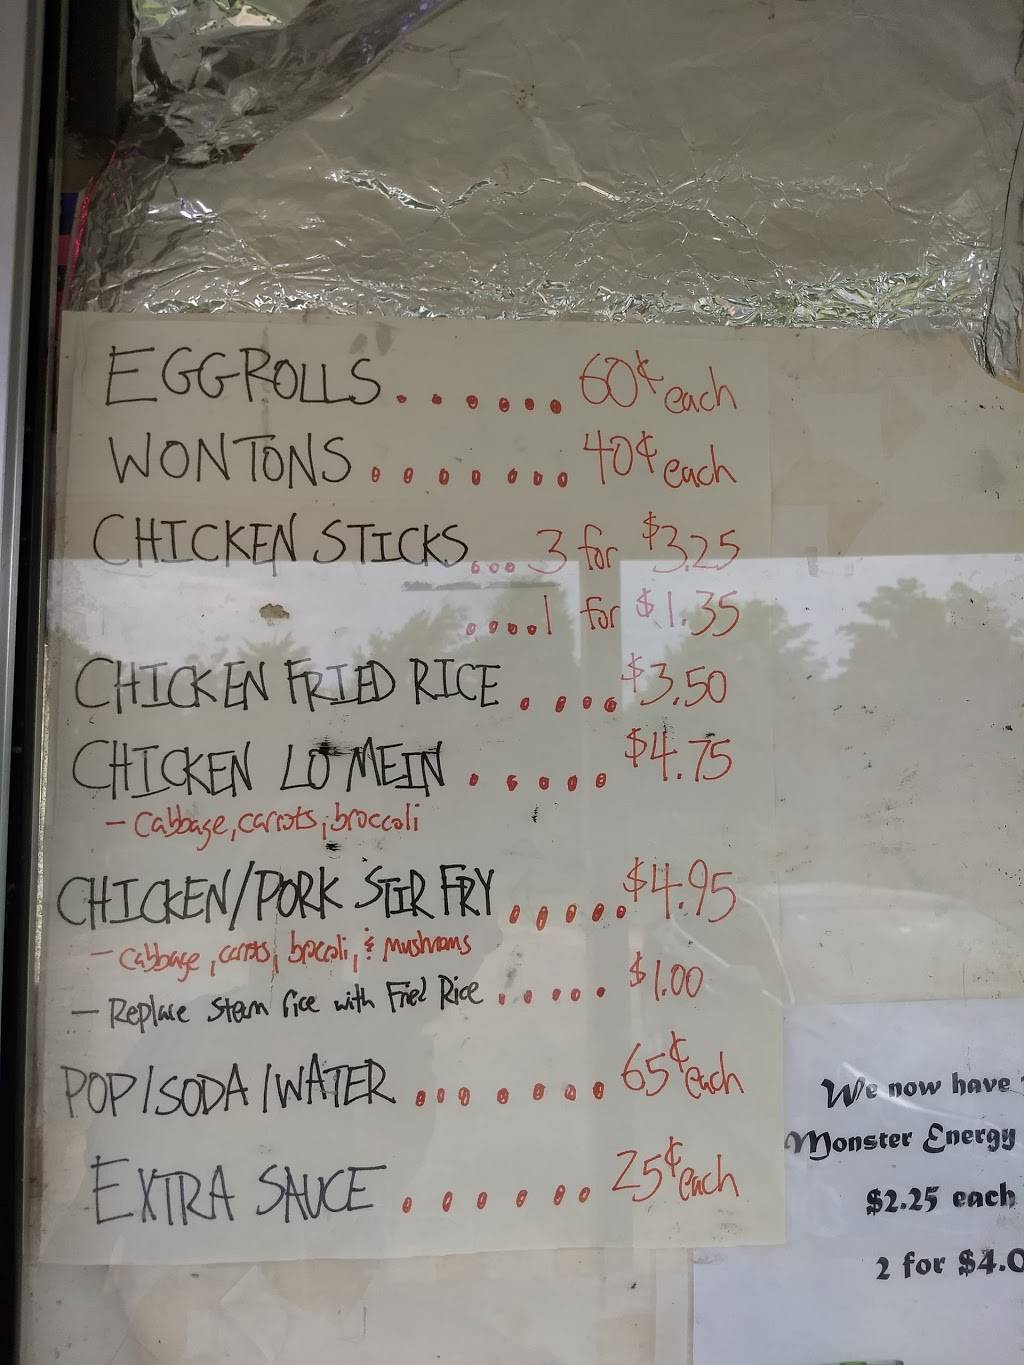 EGGROLLS....... 60¢ each
WONTONS....... 40¢ each
CHICKEN STICKS.... 3 for $3.25
....1 for $1.35
CHICKEN FRIED RICE .... $3.50
CHICKEN LO MEIN ..... $4.75
- Cabbage, carrots, broccoli
CHICKEN/PORK STIR FRY ..... $4.95
- Cabbage, carrots, broccoli, & mushrooms
- Replace steam rice with Fried Rice ..... $1.00
POP/SODA/WATER ....... 65¢ each
EXTRA SAUCE ...... 25¢ each
We now have
Monster Energy
$2.25 each
2 for $4.0